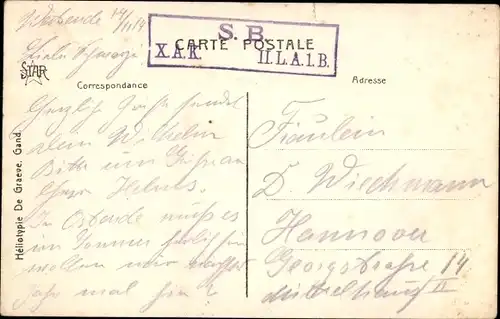 Ostende 14/11 14
Liebe
S. B.
X.A.K. II.L.A.I.B.
CARTE POSTALE
STAR
Correspondance
Adresse
Héliotypie De Graeve, Gand.
Herzliche Grüße sendet
dein Wilhelm
Bitte um Grüße an
Helms.
In Ostende muß es
im Sommer sein
wollen wir
Jahr mal hin?
Fräulein
D. Wiechmann
Hannover
Georgstraße 14
II